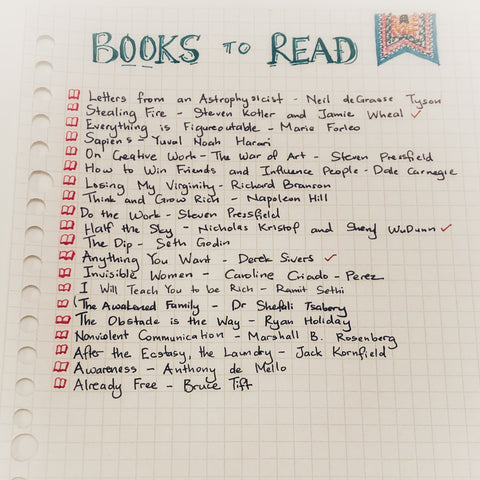 BOOKS TO READ
Letters from an Astrophysicist - Neil deGrasse Tyson
Stealing Fire - Steven Kotler and Jamie Wheal ✓
Everything is Figureoutable - Marie Forleo
Sapiens - Yuval Noah Harari
On Creative Work - The War of Art - Steven Pressfield
How to Win Friends and Influence People - Dale Carnegie
Losing My Virginity - Richard Branson
Think and Grow Rich - Napoleon Hill
Do the Work - Steven Pressfield
Half the Sky - Nicholas Kristof and Sheryl WuDunn ✓
The Dip - Seth Godin
Anything You Want - Derek Sivers ✓
Invisible Women - Caroline Criado - Perez
I Will Teach You to be Rich - Ramit Sethi
The Awakened Family - Dr Shefali Tsabary
The Obstacle is the Way - Ryan Holiday
Nonviolent Communication - Marshall B. Rosenberg
After the Ecstasy, the Laundry - Jack Kornfield
Awareness - Anthony de Mello
Already Free - Bruce Tift